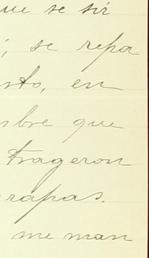 que se sir
, se repa
sto, en
mbre que
trageron
rapas.
me man